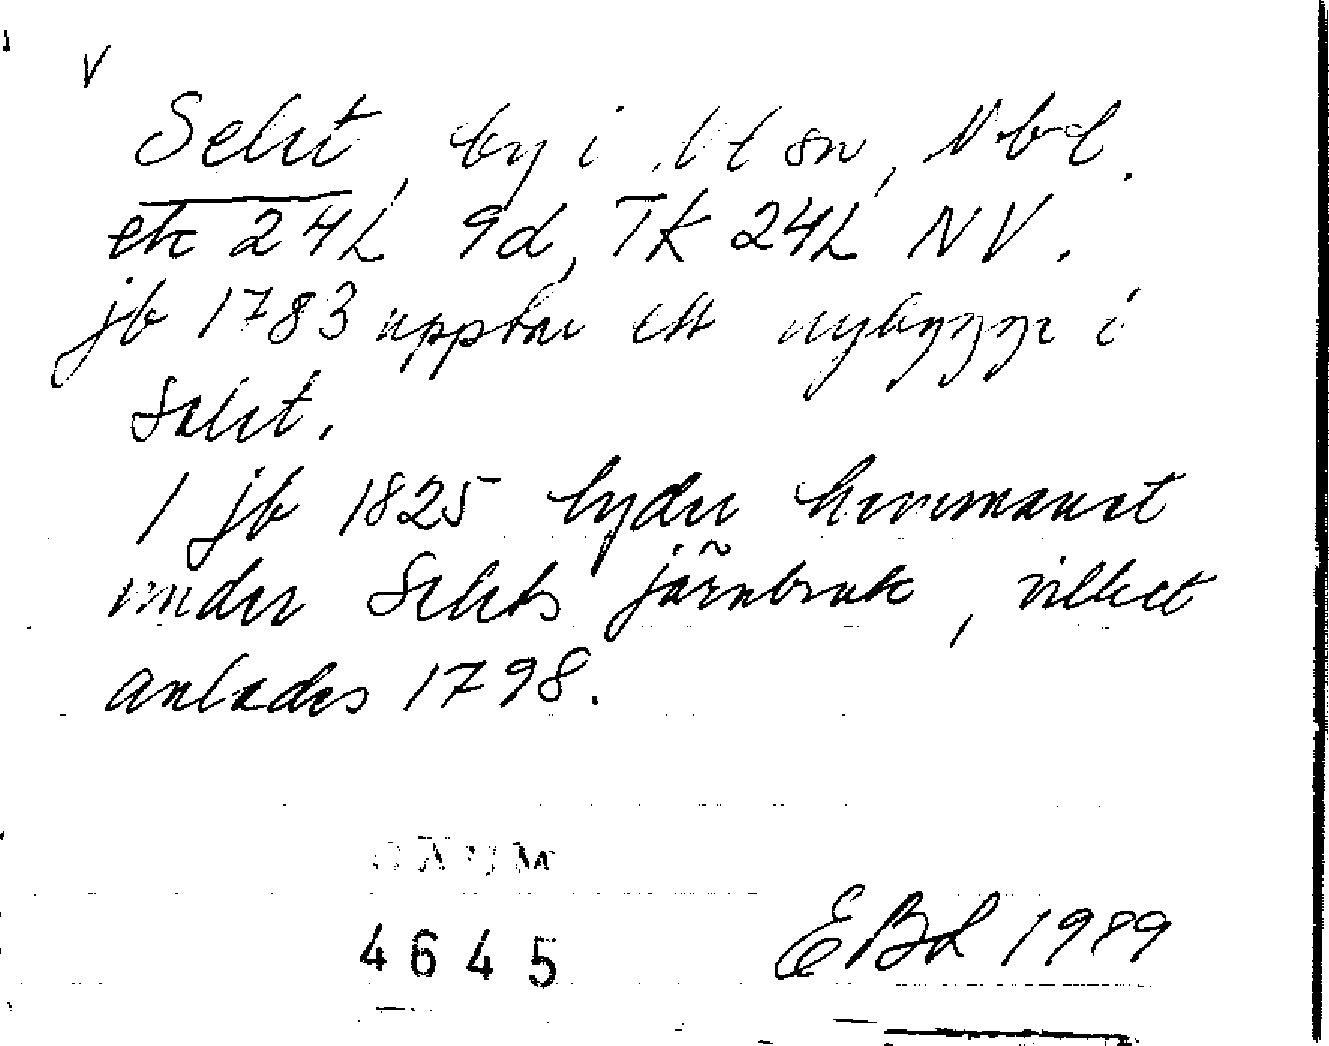 V
Selet, by i Nl sn, Nbl.
ek 24L 9d, TK 24L NV.
jb 1783 upptar ett nybygge i
Selet.
I jb 1825 lyder hemmanet
under Selets järnbruk, vilket
anlades 1798.
DAUM
4645
EBL 1989